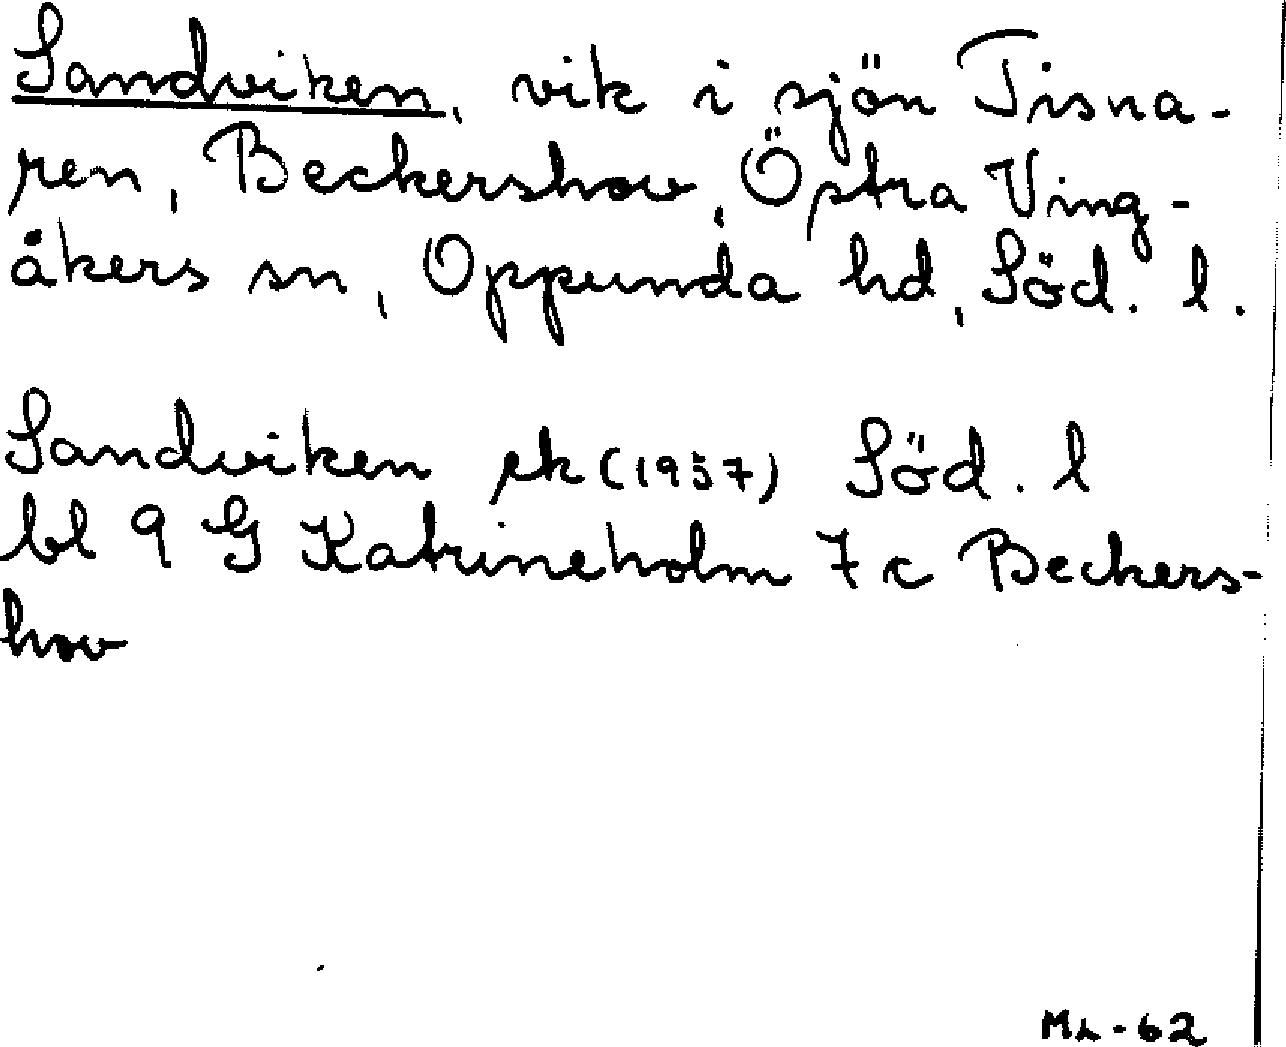 Sandviken, vik i sjön Tisna-
ren, Beckershov, Östra Ving-
åkers sn, Oppunda hd, Söd. l.
Sandviken ek (1957) Söd. l
bl 9 G Katrineholm 7 c Beckers-
hov
ML-62